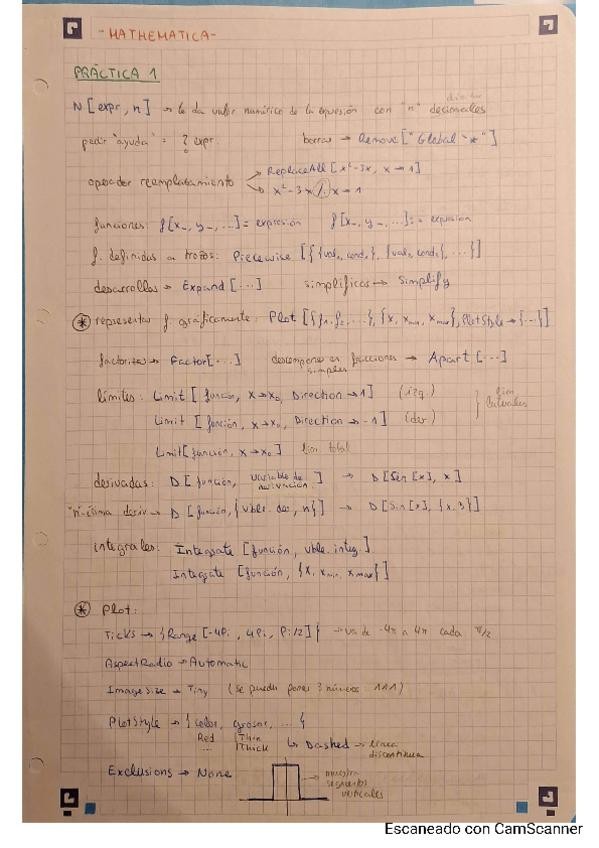 - MATHEMATICA -
PRÁCTICA 1
N [expr, n] → te da valor numérico de la expresión con "n" decimales
pedir "ayuda" = ? expr. borrar → Remove["Global`*"]
operador reemplazamiento → ReplaceAll [x²-3x, x → 1]
→ x²-3x /. x → 1
funciones: f[x_, y_, ...] = expresión f[x_, y_, ...] := expresión
f. definidas a trozos: Piecewise [{{val₁, cond₁}, {val₂, cond₂}, ...}]
desarrollos → Expand [...] simplificar → Simplify
* representar f. gráficamente: Plot [{f₁, f₂, ...}, {x, xmin, xmax}, PlotStyle → {...}]
factorizar → Factor[...] descomponer en fracciones simples → Apart [...]
límites: Limit [función, x→x₀, Direction → 1] (izq.)
Limit [función, x→x₀, Direction → -1] (der) } lim laterales
Limit[función, x→x₀] lim total
derivadas: D [función, variable de derivación] → D[Sen[x], x]
"n"-ésima deriv → D [función, {vble. der, n}] → D[Sin[x], {x, 3}]
integrales: Integrate [función, vble. integ.]
Integrate [función, {x, xmin, xmax}]
* Plot:
Ticks → {Range[-4Pi, 4Pi, Pi/2]} → va de -4π a 4π cada π/2
AspectRadio → Automatic
ImageSize → Tiny (se puede poner 3 números: 111)
PlotStyle → {color, grosor, ...}
Red ... Thin Thick ↳ Dashed → línea discontinua
Exclusions → None → muestra segmentos verticales
Escaneado con CamScanner